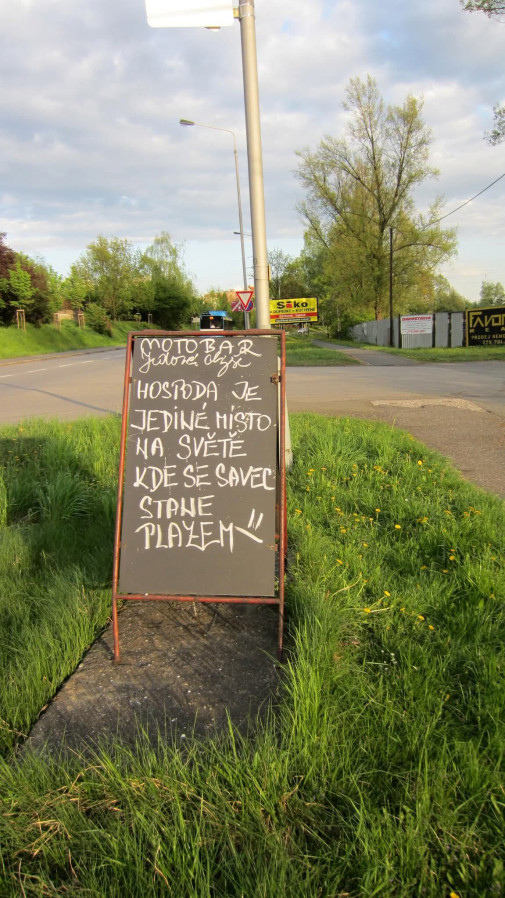 MOTOBAR
HOSPODA JE
JEDINÉ MÍSTO
NA SVĚTĚ
KDE SE SAVEC
STANE
PLAZEM!!
Siko